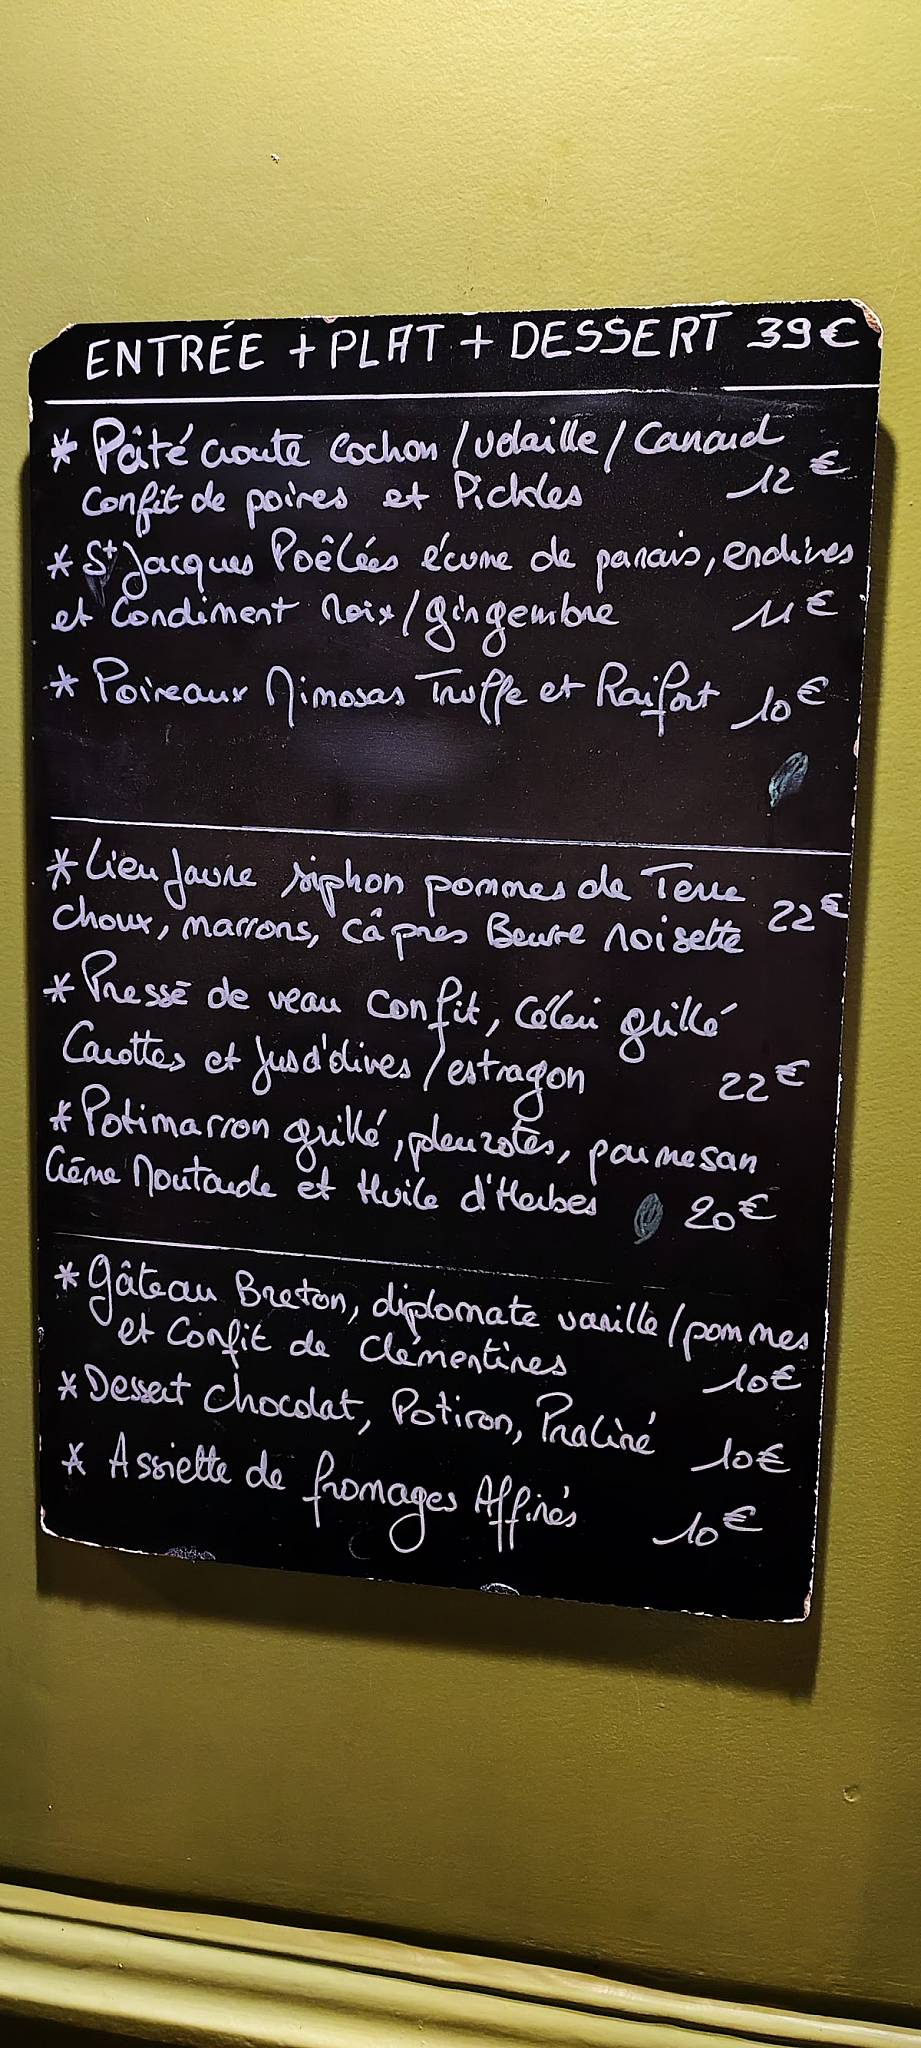 ENTRÉE + PLAT + DESSERT 39€
* Pâté croute Cochon / Volaille / Canard
Confit de poires et Pickles 12€
* St Jacques Poêlées écume de panais, endives
et Condiment Noix / gingembre 11€
* Poireaux Mimosas Truffe et Raifort 10€
* Lieu Jaune siphon pommes de Terre
choux, marrons, câpres Beurre noisette 22€
* Pressé de veau Confit, Céleri grillé
Carottes et Jus d'olives / estragon 22€
* Potimarron grillé, pleurotes, parmesan
Crème Moutarde et Huile d'Herbes 20€
* Gâteau Breton, diplomate vanille / pommes
et Confit de Clémentines 10€
* Dessert Chocolat, Potiron, Praliné 10€
* Assiette de fromages Affinés 10€